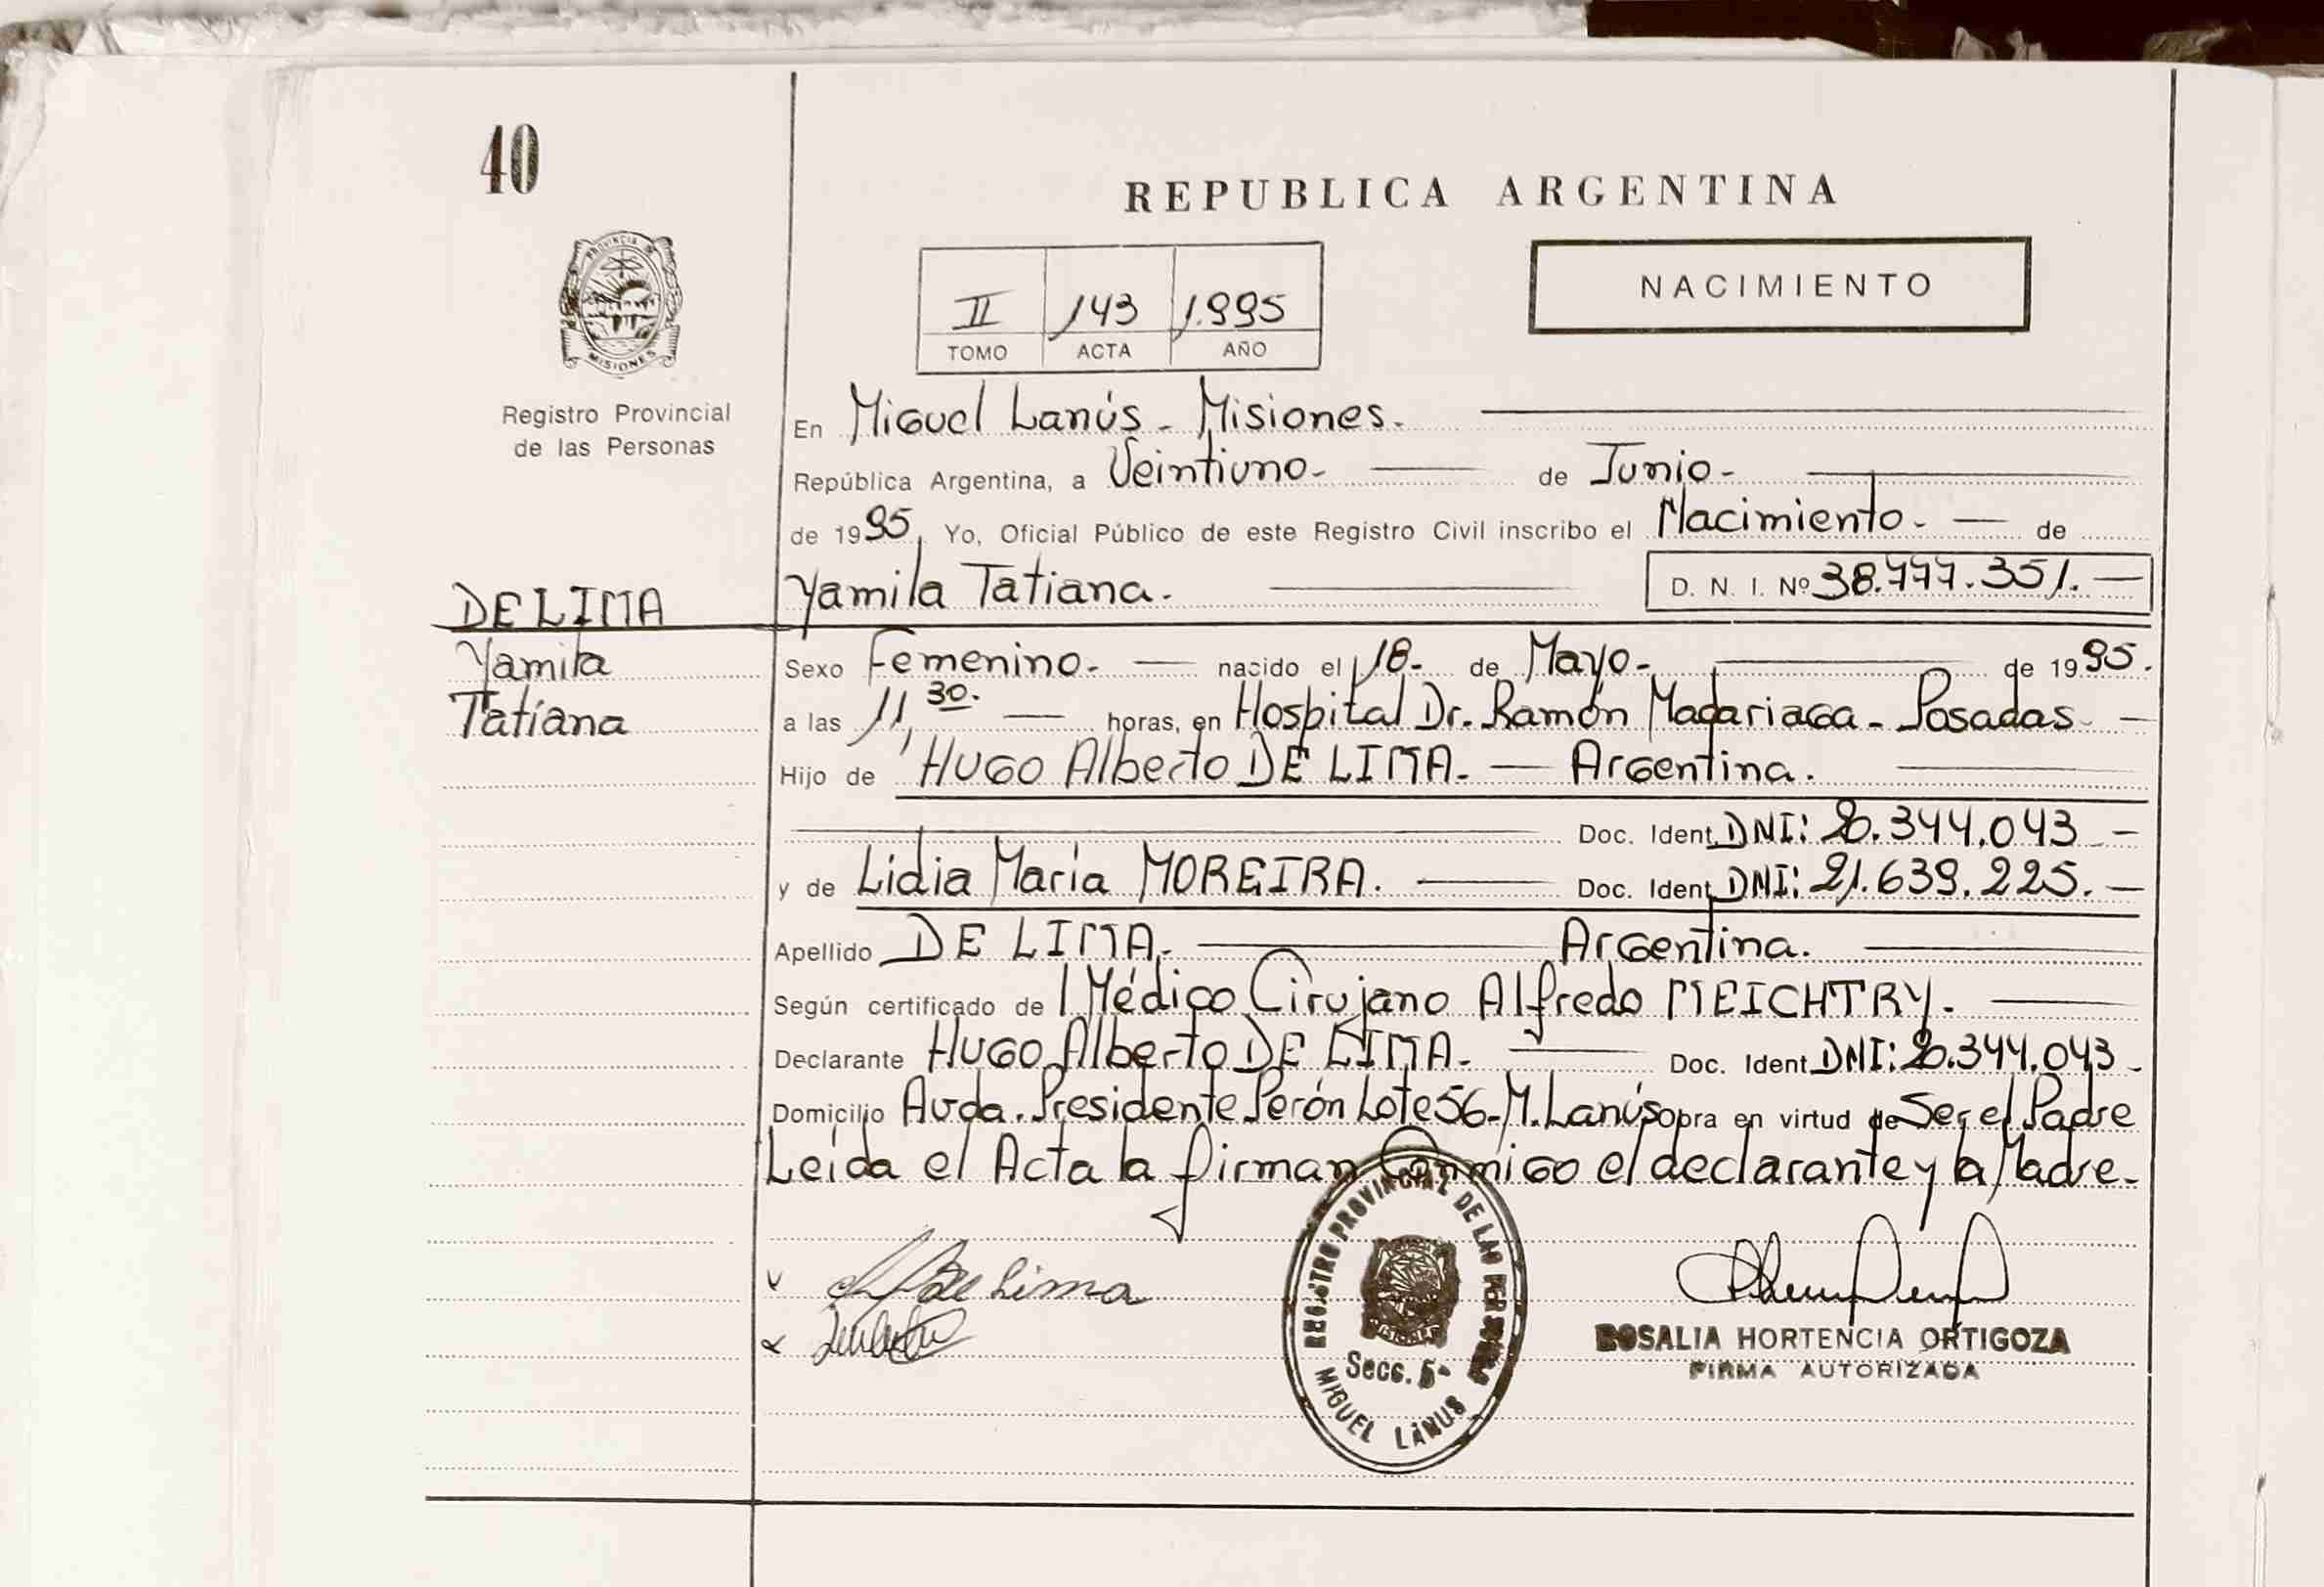 40
REPUBLICA ARGENTINA
PROVINCIA DE
MISIONES
NACIMIENTO
II 143 1.995
TOMO ACTA AÑO
Registro Provincial
de las Personas
En Miguel Lanús - Misiones.
República Argentina, a Veintiuno- de Junio-
de 1995, Yo, Oficial Público de este Registro Civil inscribo el Nacimiento- de
DE LIMA
Yamila
Tatiana
Yamila Tatiana. D. N. I. Nº 38.777.351.
Sexo Femenino. nacido el 18- de Mayo- de 1995.
a las 11,30. horas, en Hospital Dr. Ramón Madariaga - Posadas
Hijo de Hugo Alberto DE LIMA. Argentina.
Doc. Ident. DNI: 20.344.043
y de Lidia María MOREIRA. Doc. Ident. DNI: 21.639.225.
Apellido DE LIMA. Argentina.
Según certificado de l Médico Cirujano Alfredo MEICHTRY.
Declarante Hugo Alberto DE LIMA. Doc. Ident. DNI: 20.344.043
Domicilio Avda. Presidente Perón Lote 56-M. Lanús obra en virtud de Ser el Padre
Leída el Acta la firman Conmigo el declarante y la Madre.
de Lima
REGISTRO PROVINCIAL DE LAS PERSONAS
MISIONES
Secc. 5ª
MIGUEL LANUS
ROSALIA HORTENCIA ORTIGOZA
FIRMA AUTORIZADA